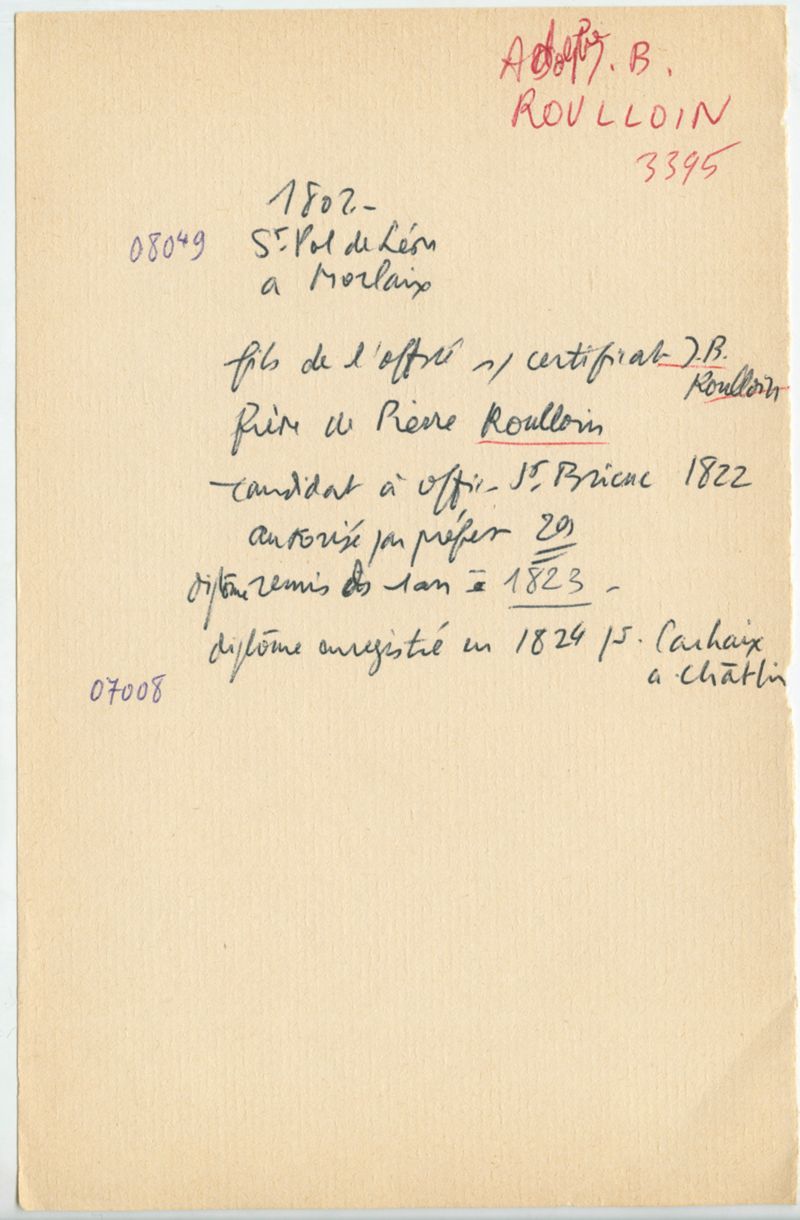 Adolphe. B.
ROULLOIN
3395
1802 -
08049 St. Pol de Léon
a Morlaix
fils de l'offsté s/ certificat J.B.
Roulloin
frère de Pierre Roulloin
- candidat à offi - St. Brieuc 1822
autorisé par préfet 29
diplôme remis 1 an 1823 -
diplôme enregistré en 1824 Carhaix
a Châtlin
07008